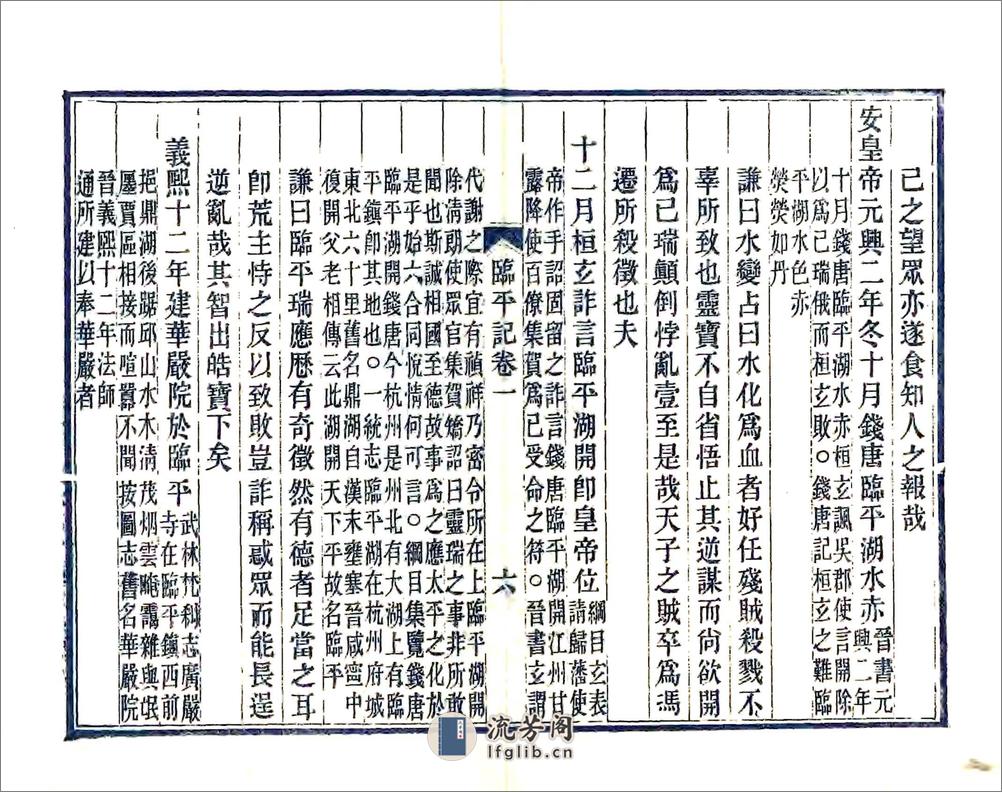 己之望眾亦遂食知人之報哉
安皇帝元興二年冬十月錢唐臨平湖水赤
晉書元
興二年
十月錢唐臨平湖水赤桓玄諷吳郡使言開除
以爲己瑞俄而桓玄敗。錢唐記桓玄之難臨
平湖水色亦
熒熒如丹
謙曰水變占曰水化爲血者好任殘賊殺戮不
辜所致也靈寶不自省悟止其逆謀而尙欲開
爲己瑞顚倒悖亂壹至是哉天子之賊卒爲馮
遷所殺徵也夫
十二月桓玄詐言臨平湖開卽皇帝位
綱目玄表
請歸藩使
帝作手詔固留之詐言錢唐臨平湖開江州甘
露降使百僚集賀爲己受命之符。晉書玄謂
臨平記卷一
六
代謝之際宜有禎祥乃密令所在上臨平湖開
除淸朗使眾官集賀矯詔曰靈瑞之事非所敢
聞也斯誠相國至德故事爲之應太平之化於
是乎始六合同悅情何可言。綱目集覽錢唐
臨平湖開錢唐今杭州是州北有大湖上有臨
平鎭卽其地也。一統志臨平湖在杭州府城
東北六十里舊名鼎湖自漢末壅塞晉咸寧中
復開父老相傳云此湖開天下平故名臨平
謙曰臨平瑞應歷有奇徵然有德者足當之耳
卽荒主恃之反以致敗豈詐稱惑眾而能長逞
逆亂哉其智出皓寶下矣
義熙十二年建華嚴院於臨平
武林梵刹志廣嚴
寺在臨平鎭西前
挹鼎湖後踞邱山水木淸茂烟雲晻靄雜與氓
廛賈區相接而喧囂不聞按圖志舊名華嚴院
晉義熙十二年法師
通所建以奉華嚴者
流芳阁
lfglib.cn